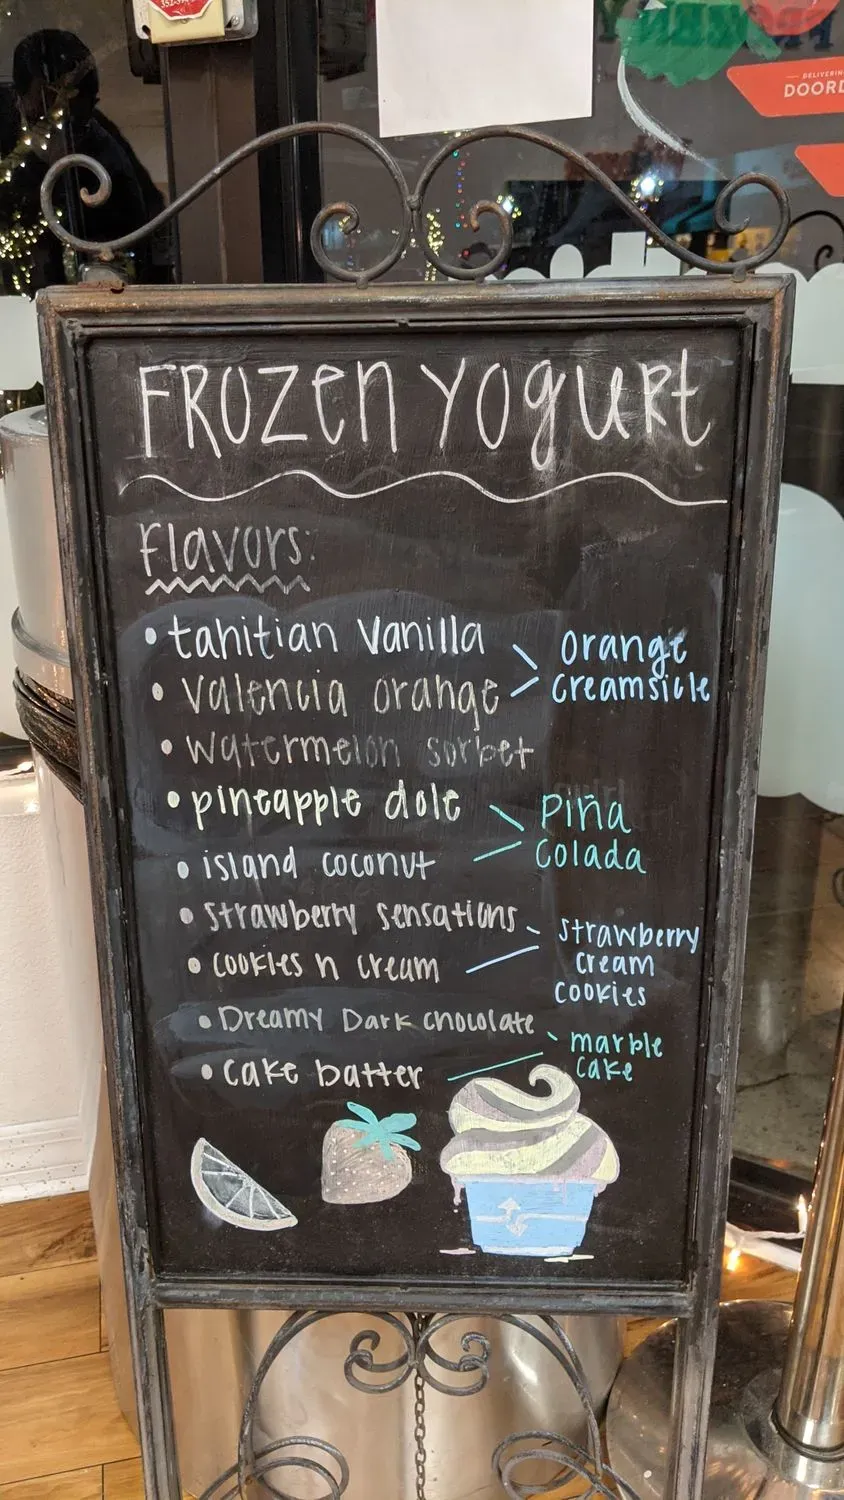 352-3
FROZEN
DELIVERIN
DOORD
FROZEN YOGURT
Flavors:
• tahitian vanilla
orange
creamsicle
• valencia orange
• watermelon sorbet
• pineapple dole
Piña
Colada
• island coconut
• strawberry sensations
strawberry
cream
cookies
• cookies n cream
• Dreamy Dark chocolate
marble
cake
• cake batter